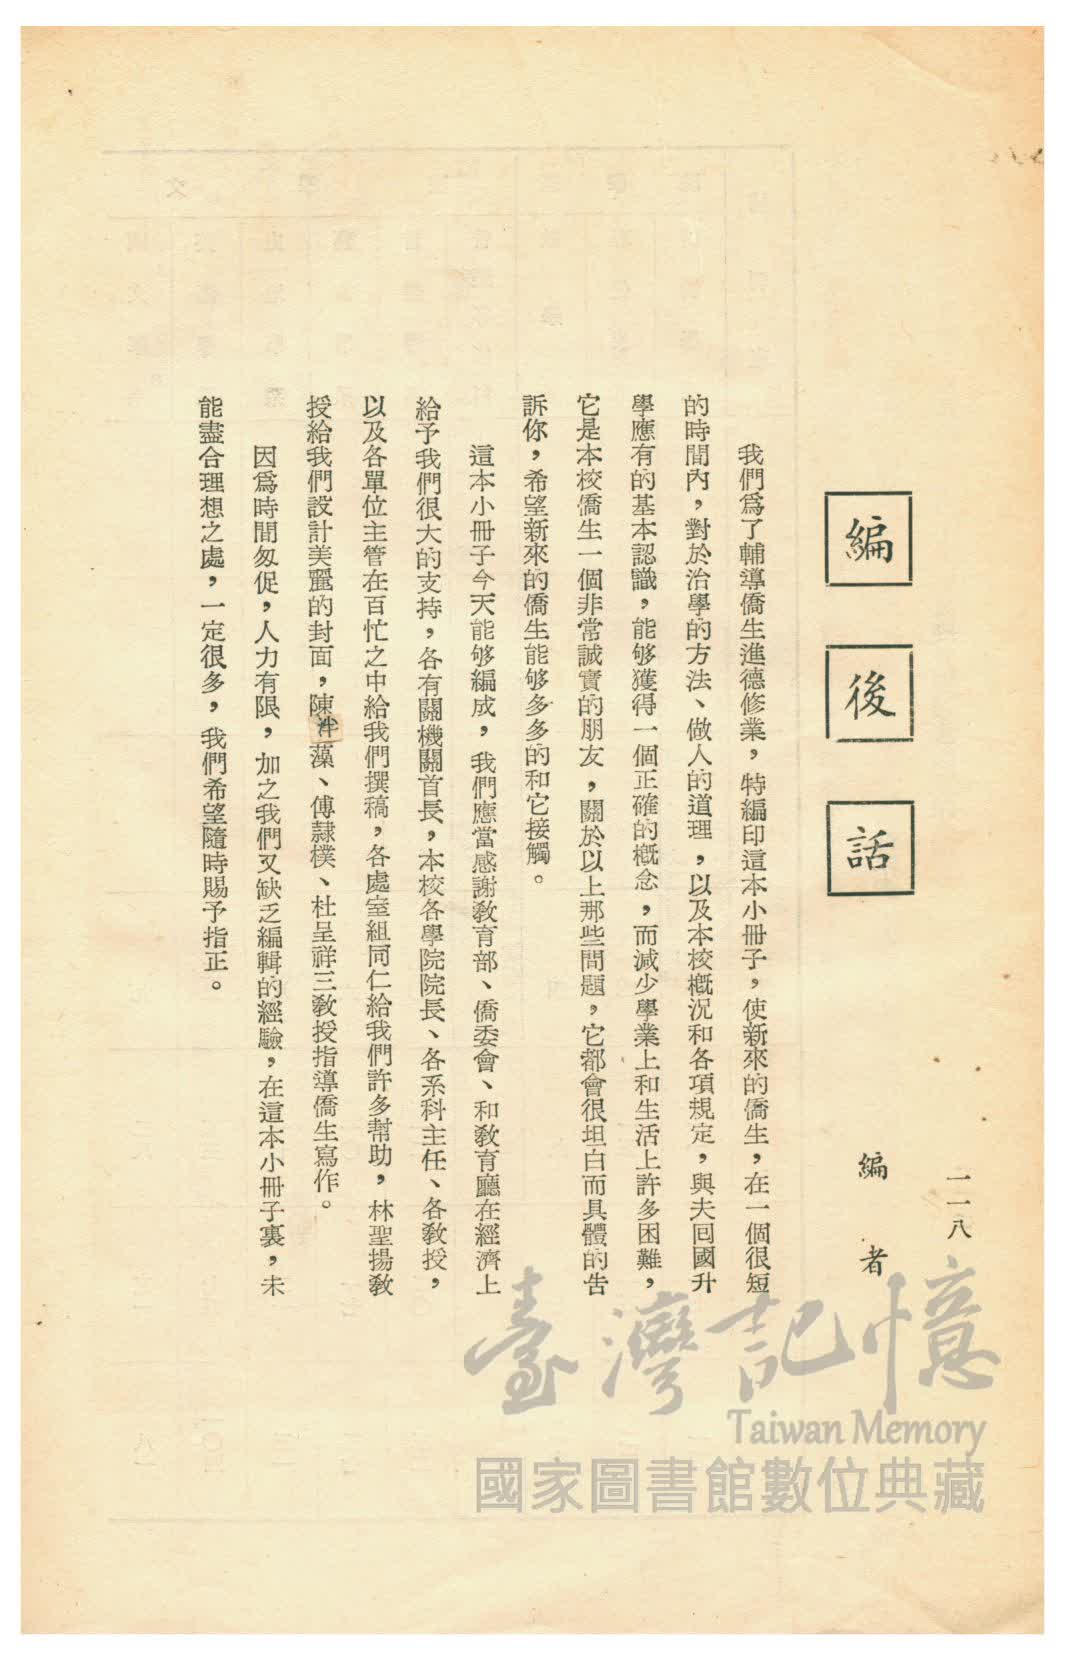 一一八
編後話
編者
我們爲了輔導僑生進德修業，特編印這本小冊子，使新來的僑生，在一個很短
的時間內，對於治學的方法、做人的道理，以及本校概況和各項規定，與夫囘國升
學應有的基本認識，能够獲得一個正確的概念，而減少學業上和生活上許多困難，
它是本校僑生一個非常誠實的朋友，關於以上那些問題，它都會很坦白而具體的告
訴你，希望新來的僑生能够多多的和它接觸。
這本小冊子今天能够編成，我們應當感謝教育部、僑委會、和教育廳在經濟上
給予我們很大的支持，各有關機關首長，本校各學院院長、各系科主任、各教授，
以及各單位主管在百忙之中給我們撰稿，各處室組同仁給我們許多幫助，林聖揚教
授給我們設計美麗的封面，陳泮藻、傅隸樸、杜呈祥三教授指導僑生寫作。
因爲時間匆促，人力有限，加之我們又缺乏編輯的經驗，在這本小冊子裏，未
能盡合理想之處，一定很多，我們希望隨時賜予指正。
臺灣記憶
Taiwan Memory
國家圖書館數位典藏